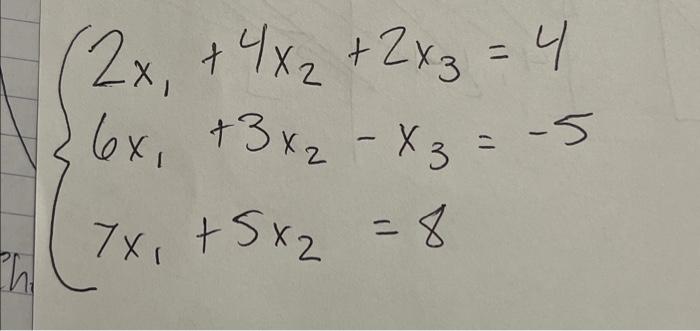 2x₁ + 4x₂ + 2x₃ = 4
6x₁ + 3x₂ - x₃ = -5
7x₁ + 5x₂ = 8